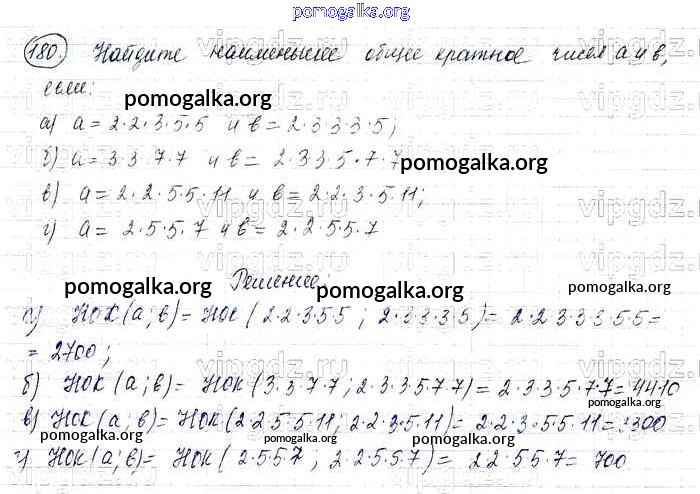 pomogalka.org
180. Найдите наименьшее общее кратное чисел а и в,
если:
pomogalka.org
а) а = 2·2·3·5·5 и в = 2·3·3·3·5;
б) а = 3·3·7·7 и в = 2·3·3·5·7·7
pomogalka.org
в) а = 2·2·5·5·11 и в = 2·2·3·5·11;
г) а = 2·5·5·7 и в = 2·2·5·5·7
Решение:
pomogalka.org
pomogalka.org
а) НОК(а; в) = НОК(2·2·3·5·5; 2·3·3·3·5) = 2·2·3·3·3·5·5 =
= 2700;
б) НОК(а; в) = НОК(3·3·7·7; 2·3·3·5·7·7) = 2·3·3·5·7·7 = 4410
pomogalka.org
в) НОК(а; в) = НОК(2·2·5·5·11; 2·2·3·5·11) = 2·2·3·5·5·11 = 3300
pomogalka.org
pomogalka.org
pomogalka.org
г) НОК(а; в) = НОК(2·5·5·7; 2·2·5·5·7) = 2·2·5·5·7 = 700